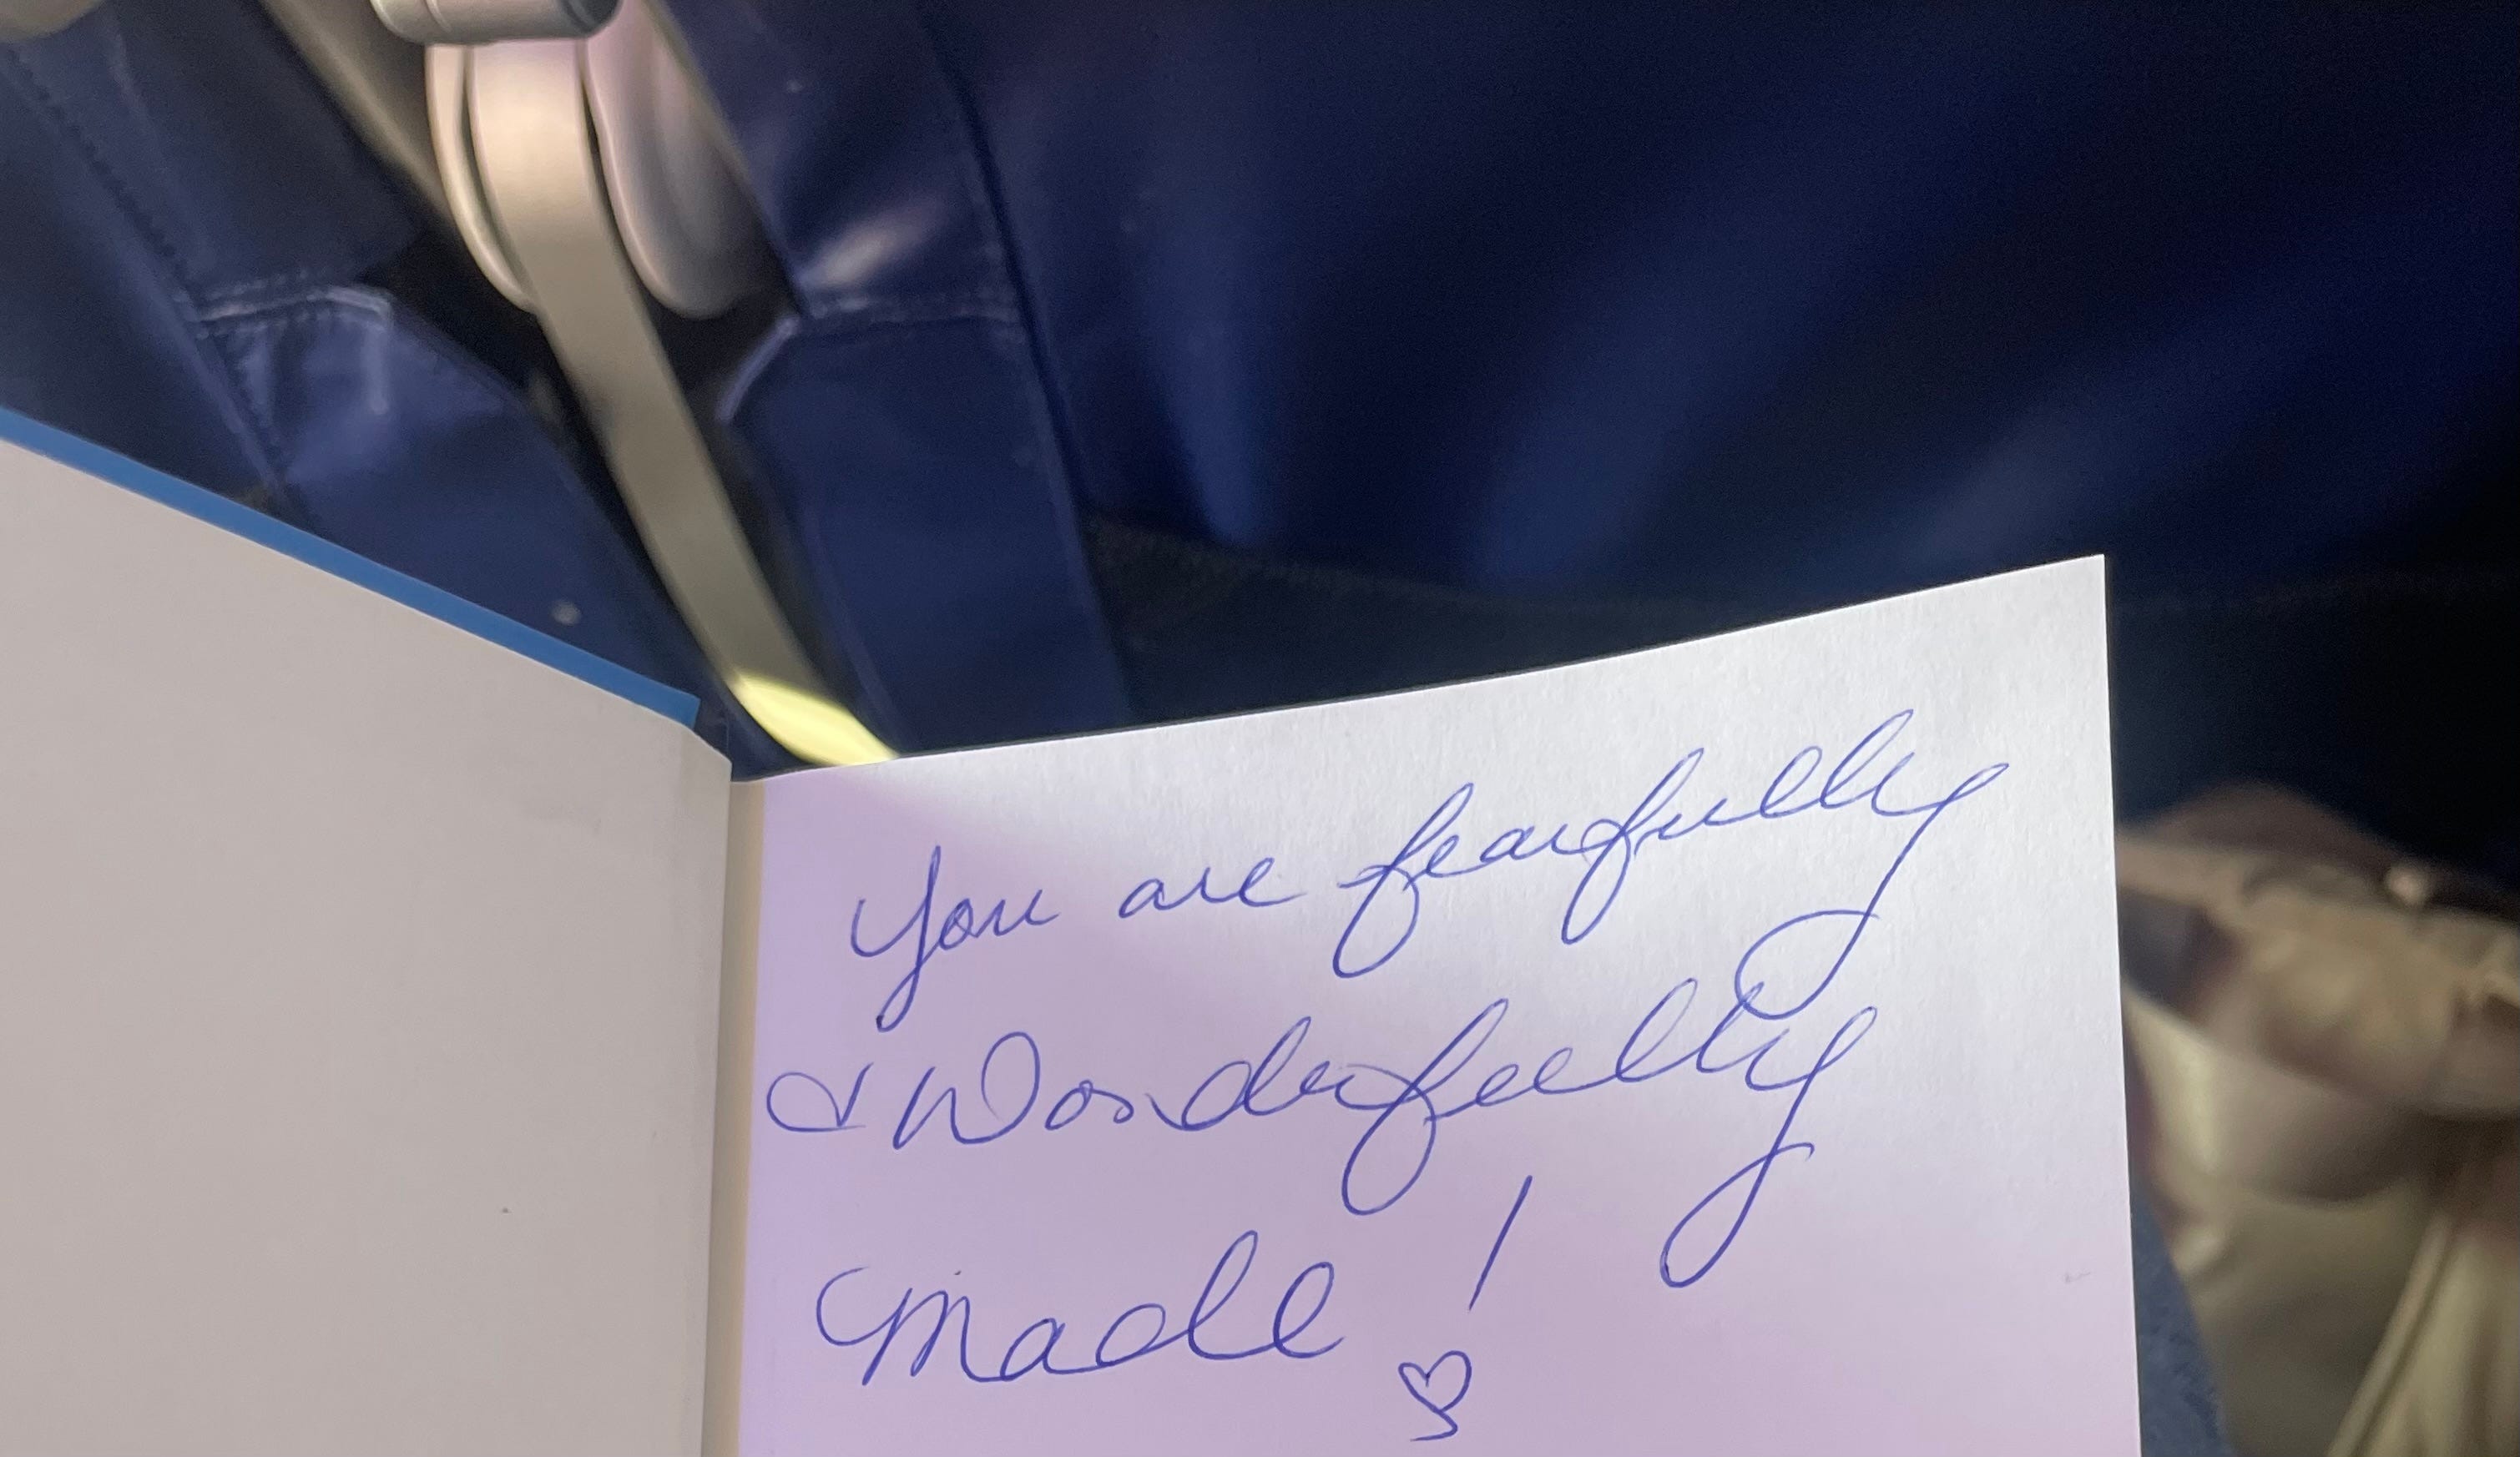 You are fearfully
& Wonderfully
Made!